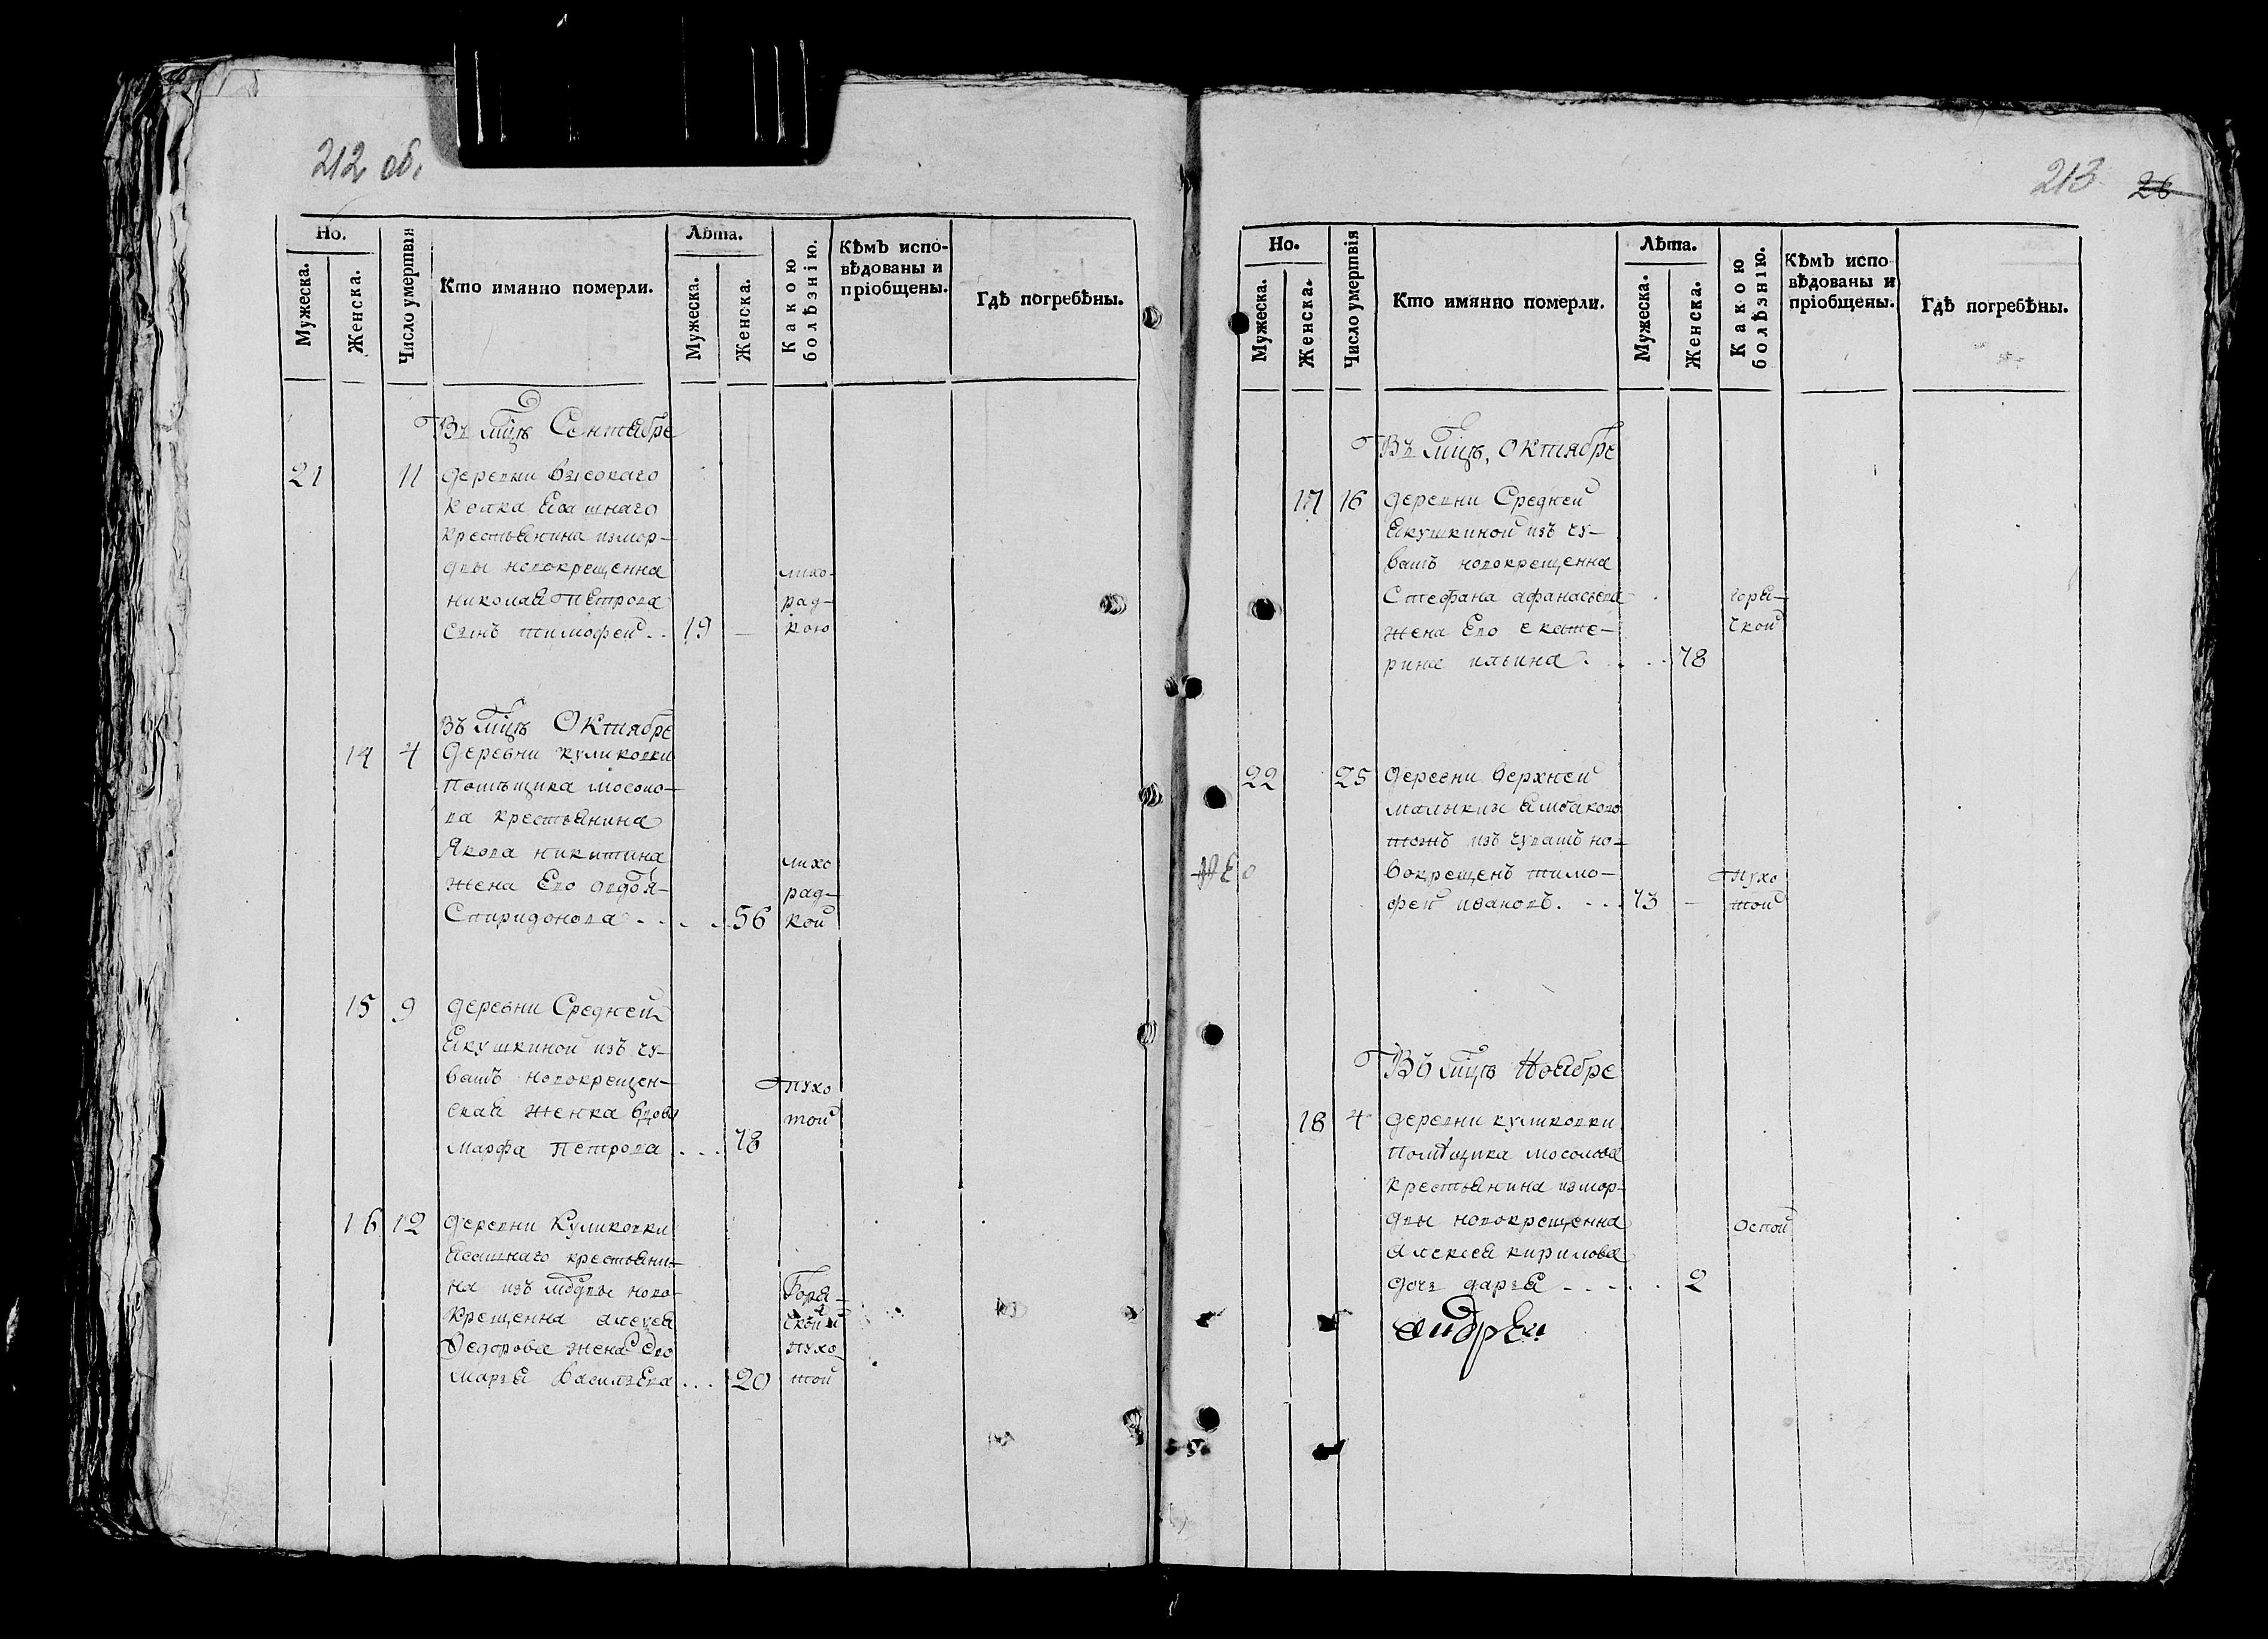 212 об.
Но.
Мужеска.
Женска.
Число умертвія
Кто имянно померли.
Лѣта.
Мужеска.
Женска.
Какою болѣзнію.
Кѣмъ испо-
вѣдованы и
пріобщены.
Гдѣ погребѣны.
Въ мцѣ Сентябре
21 11 деревни высокаго
колка ясашнаго
крестьянина измор-
двы новокрещенна лихо-
николая петрова рад-
сынъ тимофей . . 19 — кою
Въ мцѣ Октябре
14 4 деревни куликовки
помѣщика мосоло-
ва крестьянина
Якова никитина лихо
жена Ево авдотья рад-
Спиридонова . . . . 56 кой
15 9 деревни Средней
якушкиной изъ чу-
вашъ новокрещен- пухо
ская женка вдова той
марфа петрова . . . 78
16 12 деревни Куликовки
ясашнаго крестьяни-
на изъ мордвы ново- Горя-
крещенна алексея чкой
Федорова жена Ево пухо
марья васильева . . . 20 той
213 26
Но.
Мужеска.
Женска.
Число умертвія
Кто имянно померли.
Лѣта.
Мужеска.
Женска.
Какою болѣзнію.
Кѣмъ испо
вѣдованы и
пріобщены.
Гдѣ погребѣны.
Въ мцѣ, Октябре
17 16 деревни Средней
якушкиной изъ чу-
вашъ новокрещенна
Стефана афанасьева горя-
жена Ево екате- чкой
рина ильина . . . . 78
22 25 деревни верхней
малыкли ямбаково
тожъ изъ чувашъ но-
вокрещенъ тимо- пухо
фей ивановъ . . . . 73 — той
Въ мцѣ Ноябре
18 4 деревни куликовки
помѣщика мосолова
крестьянина измор-
двы новокрещенна оспой
алексея кирилова
дочь дарья . . . . . 2
Андрей